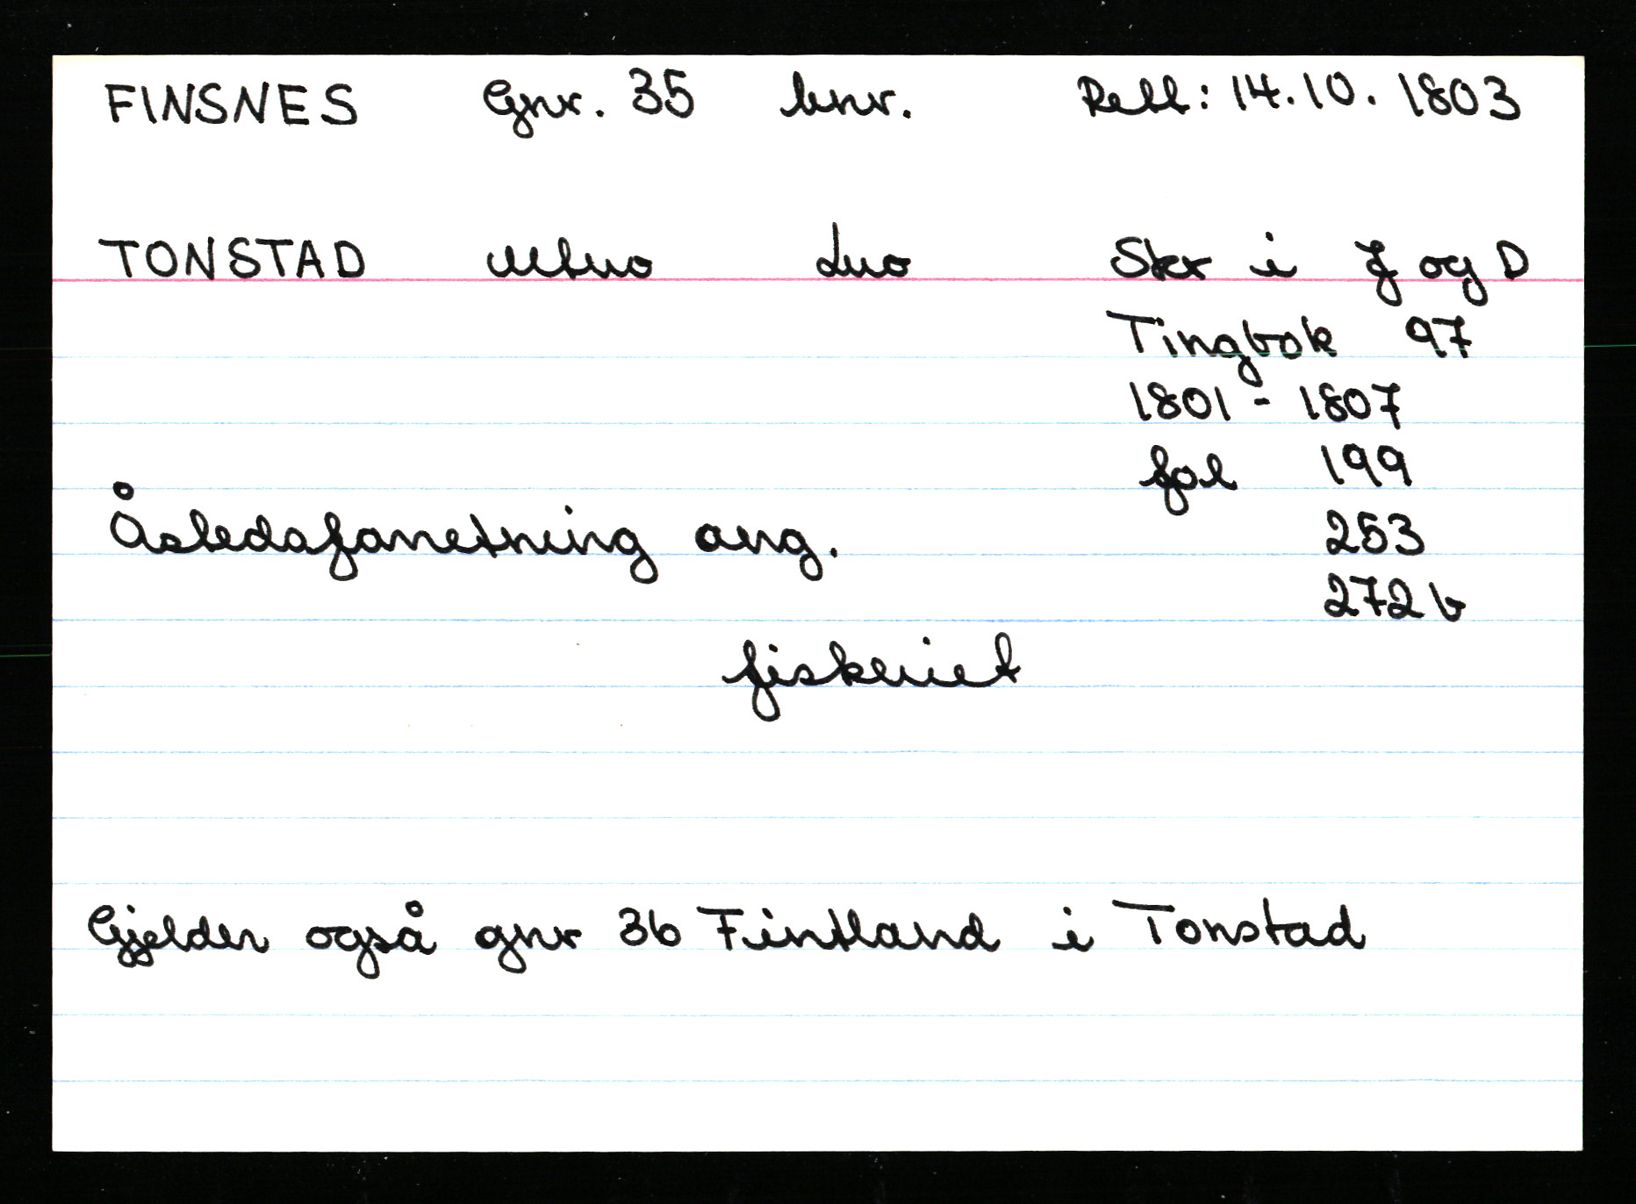 FINSNES Gnr. 35 bnr. Rett: 14.10.1803
TONSTAD Skr i J og D
Tingbok 97
1801 - 1807
fol 199
Åstedsforretning ang. 253
272 b
fiskeriet
Gjelder også gnr 36 Fintland i Tonstad